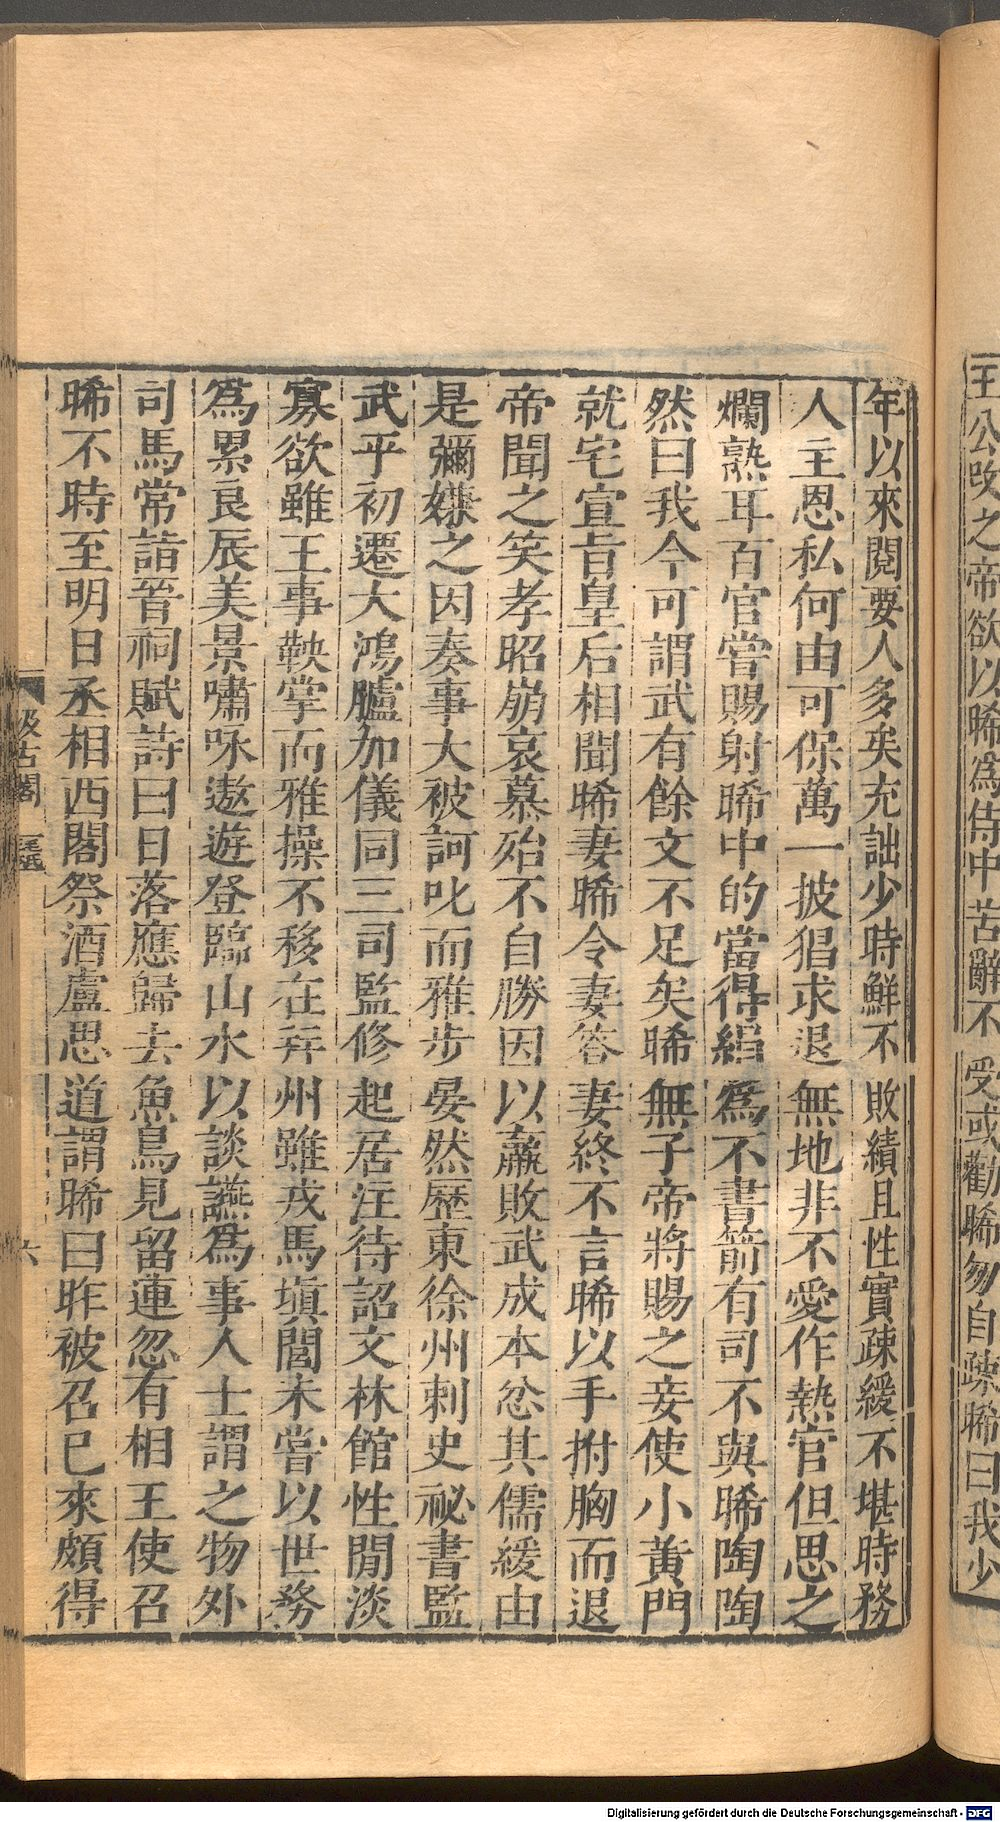 王公改之帝欲以晞爲侍中苦辭不受或勸晞勿自疎晞曰我少
年以來閱要人多矣充詘少時鮮不敗績且性實疎緩不堪時務
人主恩私何由可保萬一披猖求退無地非不愛作熱官但思之
爛熟耳百官嘗賜射晞中的當得絹爲不書箭有司不與晞陶陶
然曰我今可謂武有餘文不足矣晞無子帝將賜之妾使小黄門
就宅宣旨皇后相聞晞妻晞令妻答妻終不言晞以手拊胸而退
帝聞之笑孝昭崩哀慕殆不自勝因以羸敗武成本忿其儒緩由
是彌嫌之因奏事大被訶叱而雅步晏然歷東徐州刺史祕書監
武平初遷大鴻臚加儀同三司監修起居注待詔文林館性閒淡
寡欲雖王事鞅掌而雅操不移在并州雖戎馬塡閭未嘗以世務
爲累良辰美景嘯咏遨遊登臨山水以談讌爲事人士謂之物外
司馬常詣晉祠賦詩曰日落應歸去魚鳥見留連忽有相王使召
晞不時至明日丞相西閣祭酒盧思道謂晞曰昨被召已來頗得
汲古閣
六
Digitalisierung gefördert durch die Deutsche Forschungsgemeinschaft - DFG